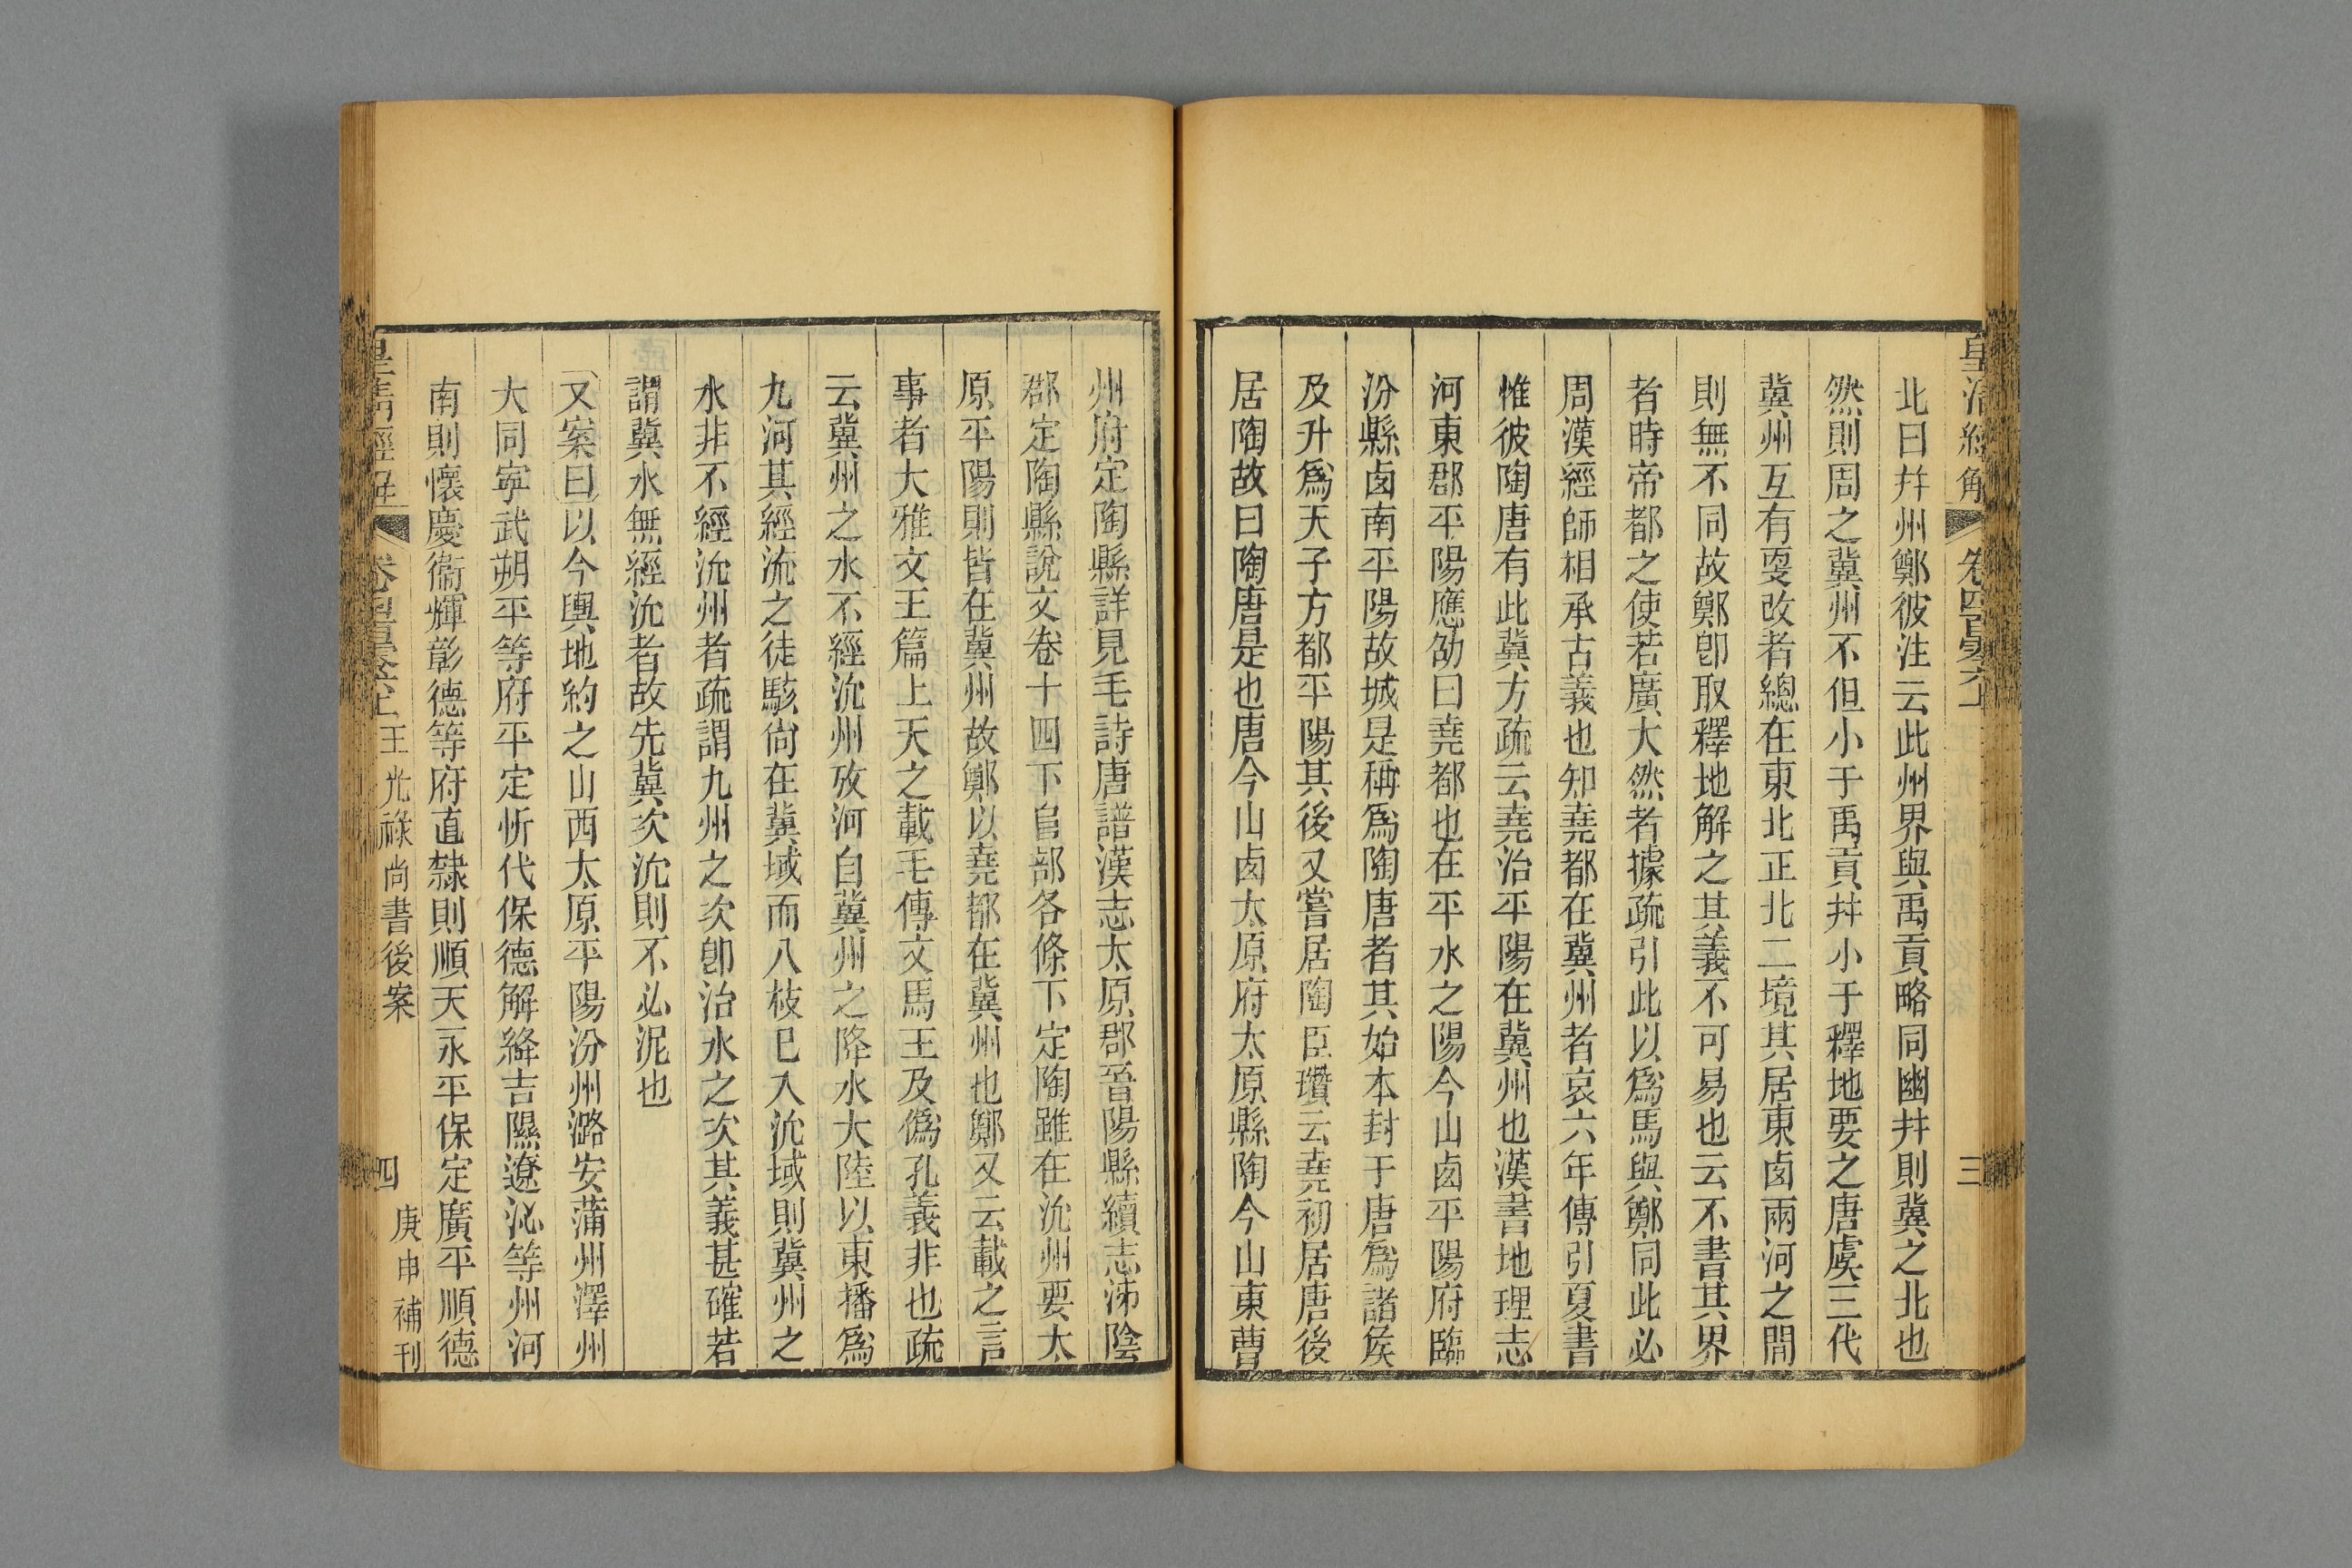 皇清經解
卷四百零六上
三
北曰幷州鄭彼注云此州界與禹貢略同幽幷則冀之北也
然則周之冀州不但小于禹貢幷小于釋地要之唐虞三代
冀州互有㪅改者總在東北正北二境其居東鹵兩河之閒
則無不同故鄭卽取釋地解之其義不可易也云不書其界
者時帝都之使若廣大然者據疏引此以爲馬與鄭同此必
周漢經師相承古義也知堯都在冀州者哀六年傳引夏書
惟彼陶唐有此冀方疏云堯治平陽在冀州也漢書地理志
河東郡平陽應劭曰堯都也在平水之陽今山鹵平陽府臨
汾縣鹵南平陽故城是稱爲陶唐者其始本封于唐爲諸矦
及升爲天子方都平陽其後又嘗居陶臣瓚云堯初居唐後
居陶故曰陶唐是也唐今山鹵太原府太原縣陶今山東曹
州府定陶縣詳見毛詩唐譜漢志太原郡晉陽縣續志泲陰
郡定陶縣說文卷十四下𨸏部各條下定陶雖在沇州要太
原平陽則皆在冀州故鄭以堯都在冀州也鄭又云載之言
事者大雅文王篇上天之載毛傳文馬王及僞孔義非也疏
云冀州之水不經沇州攷河自冀州之降水大陸以東播爲
九河其經流之徒駭尙在冀域而八枝巳入沇域則冀州之
水非不經沇州者疏謂九州之次卽治水之次其義甚確若
謂冀水無經沇者故先冀次沇則不必泥也
又案曰以今輿地約之山西太原平陽汾州潞安蒲州澤州
大同寧武朔平等府平定忻代保德解絳吉隰遼沁等州河
南則懷慶衞輝彰德等府直隸則順天永平保定廣平順德
皇清經解
卷四百零六上
王光祿尚書後案
四
庚申補刊